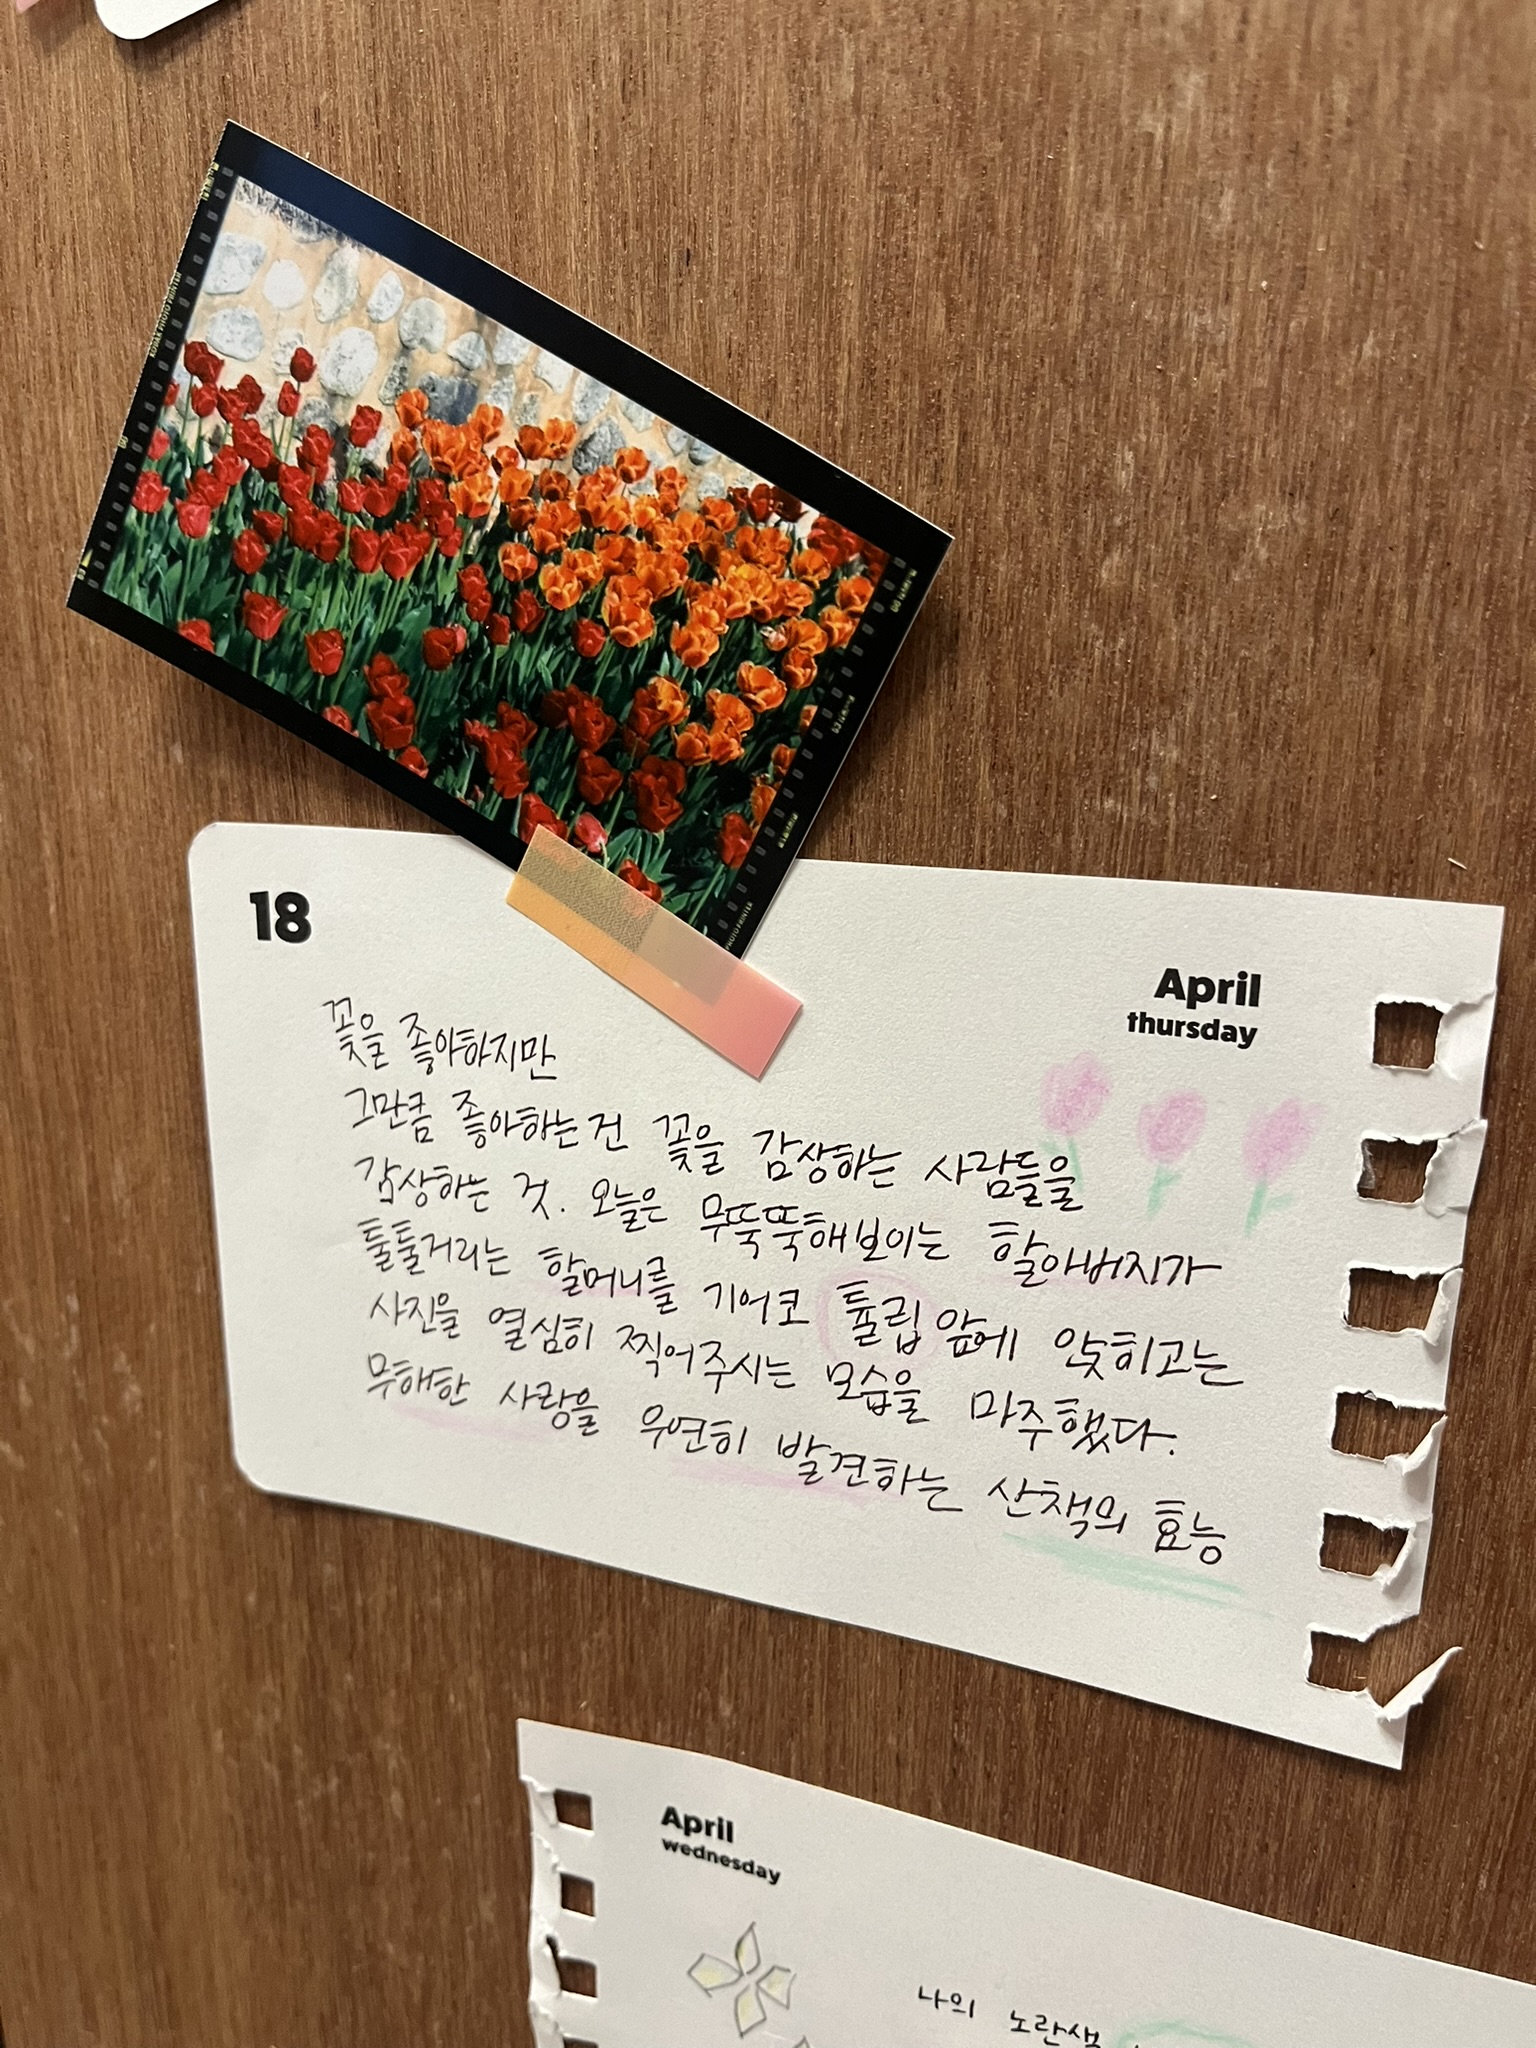 KODAK PHOTO PRINTER
18
April
thursday
꽃을 좋아하지만
그만큼 좋아하는건 꽃을 감상하는 사람들을
감상하는 것. 오늘은 무뚝뚝해보이는 할아버지가
툴툴거리는 할머니를 기어코 튤립 앞에 앉히고는
사진을 열심히 찍어주시는 모습을 마주했다.
무해한 사랑을 우연히 발견하는 산책의 효능
April
wednesday
나의 노란색